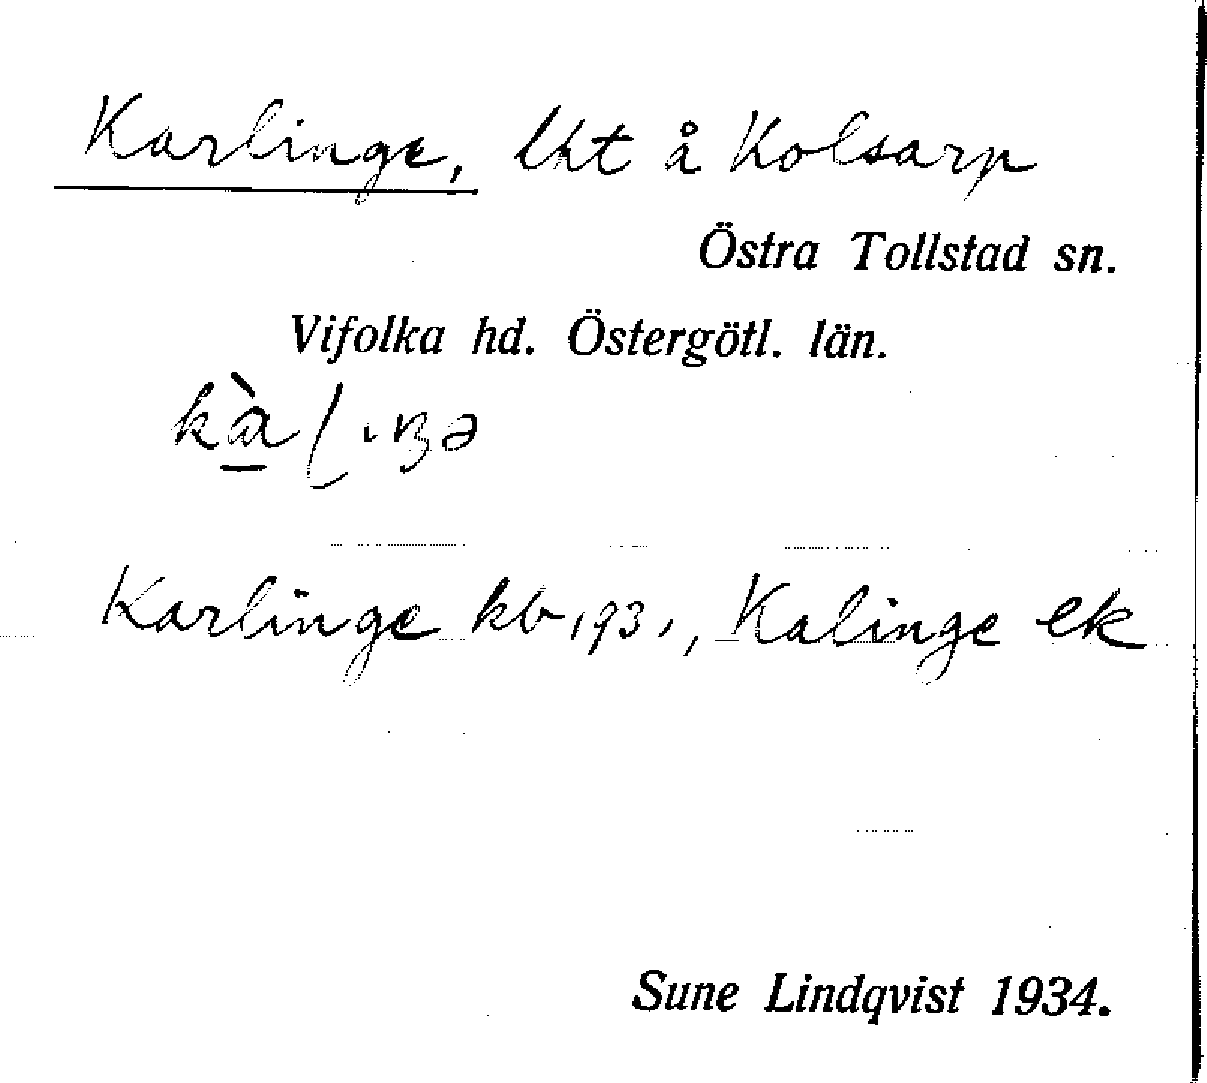 Karlinge, lht å Kolsarp
Östra Tollstad sn.
Vifolka hd. Östergötl. län.
Karlinge kb 1931, Kalinge ek
Sune Lindqvist 1934.